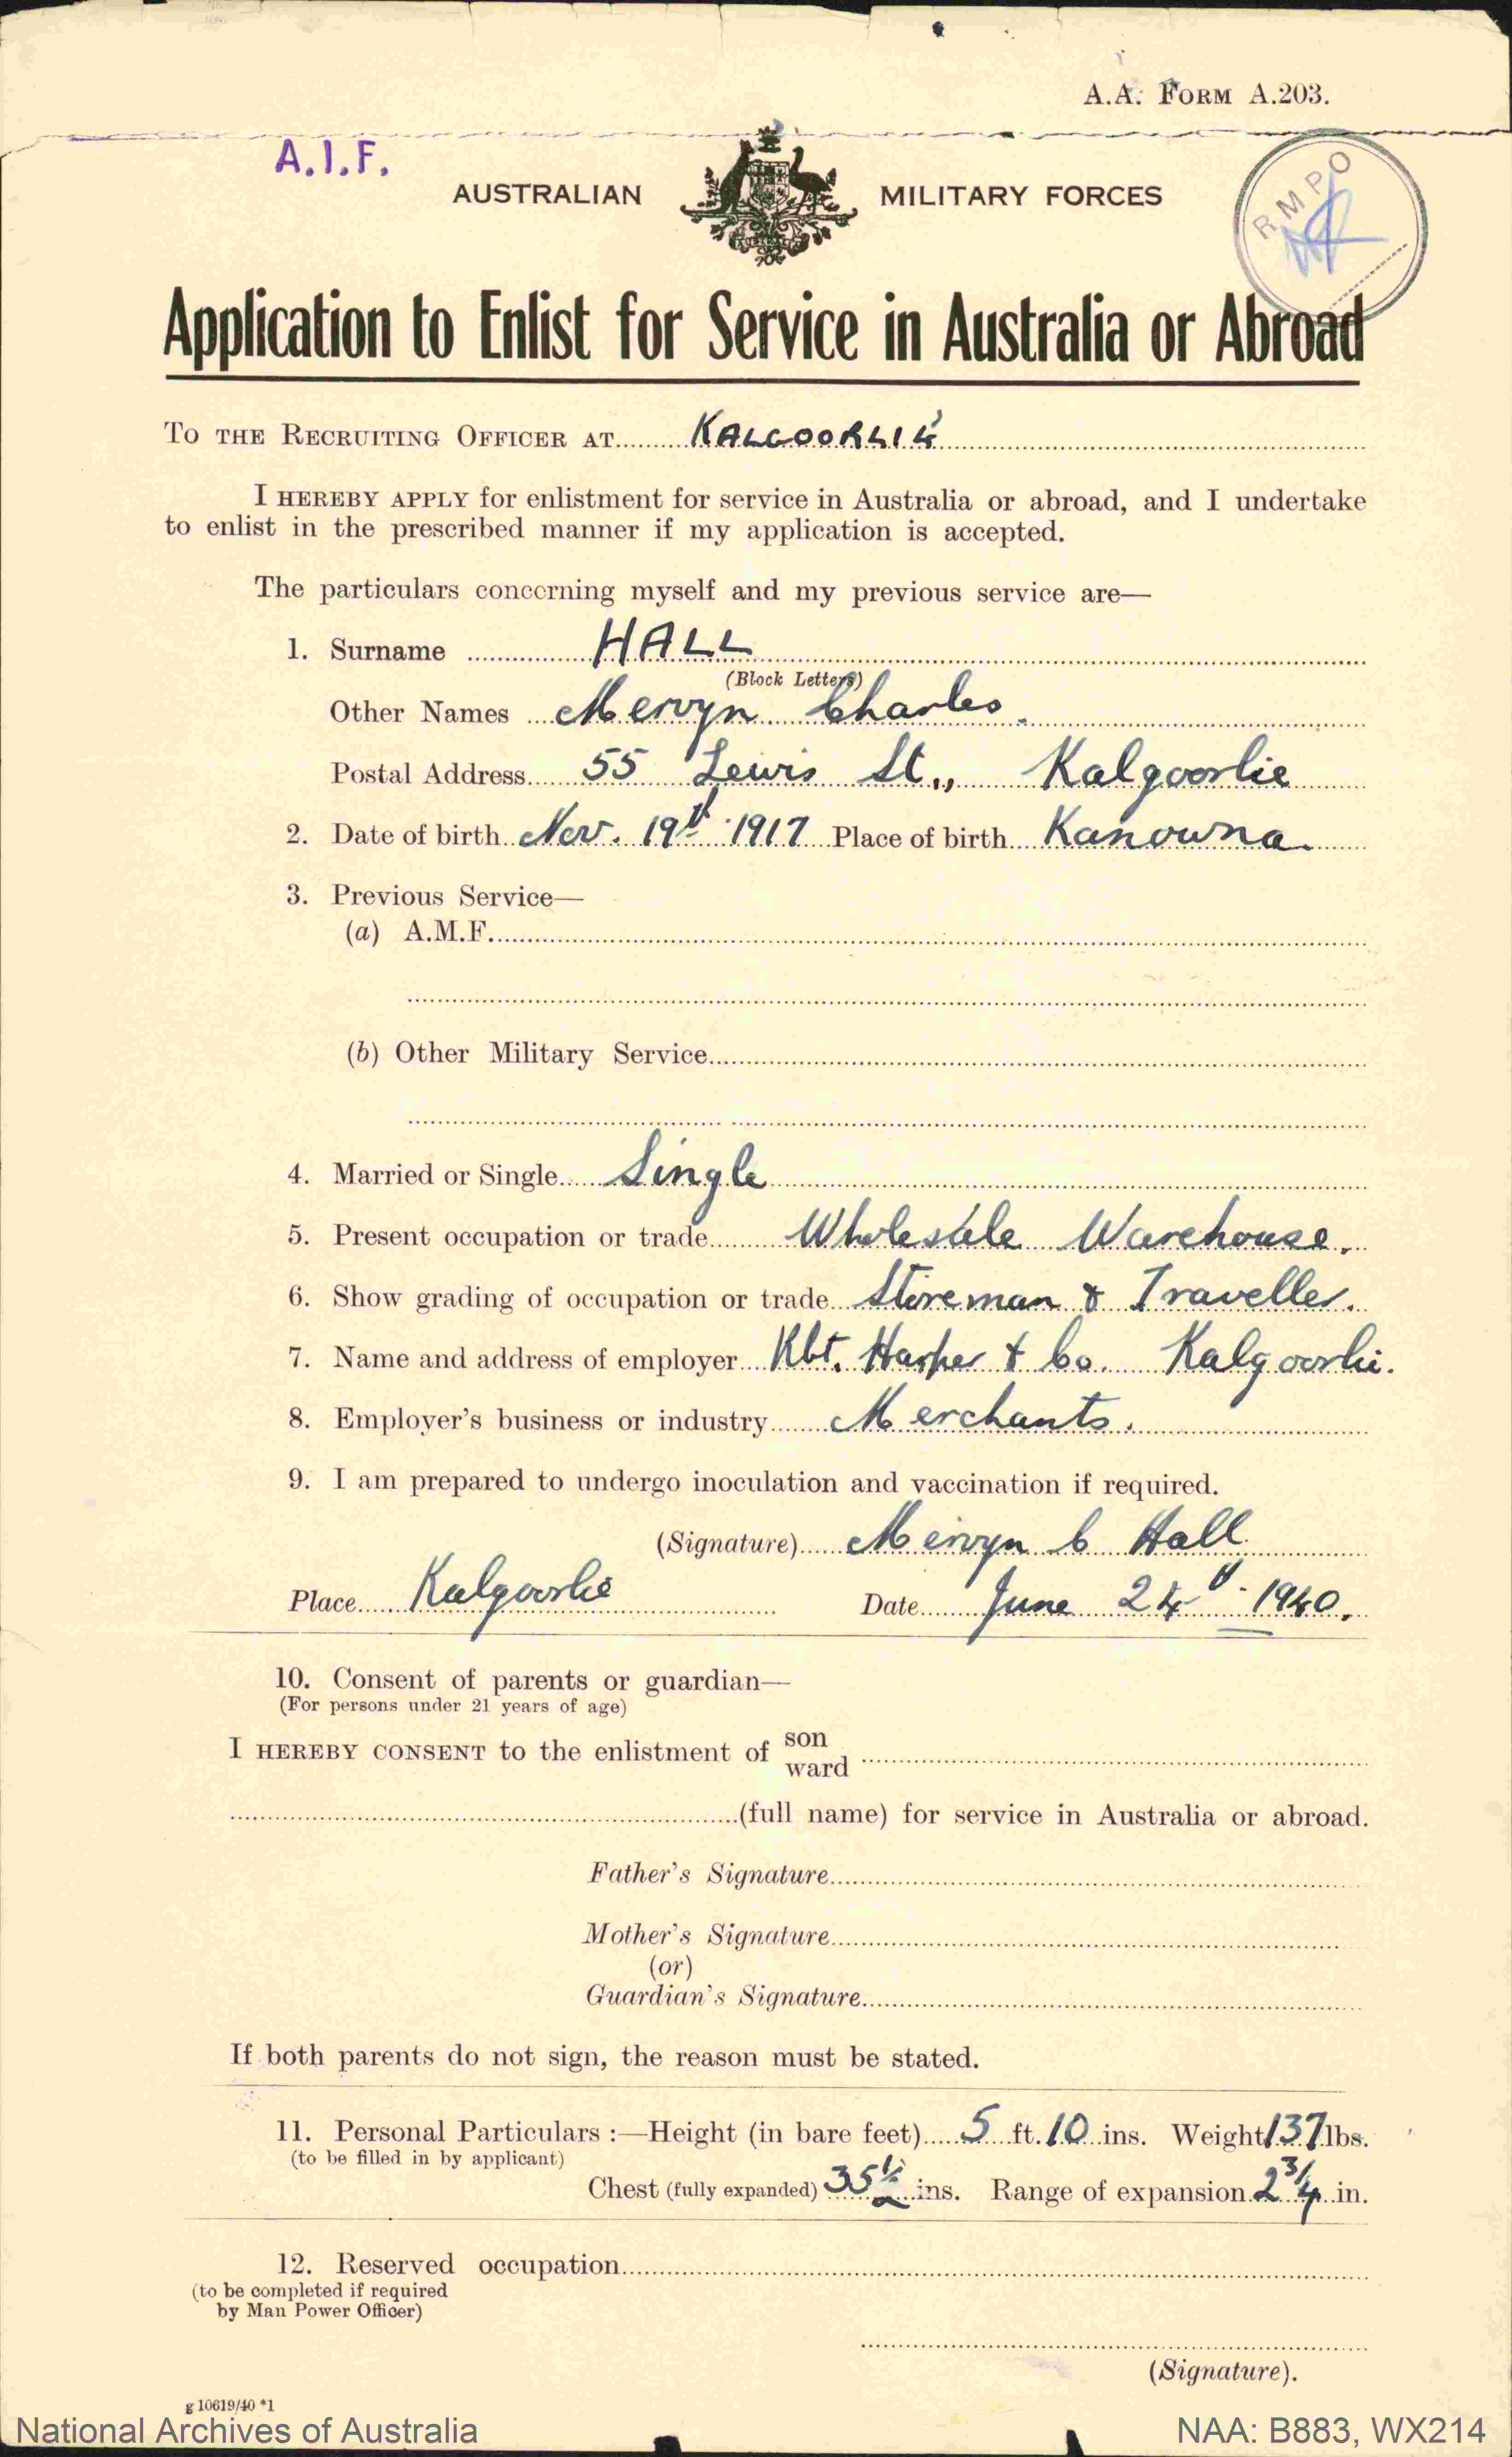 A.A. FORM A.203.
A.I.F.
AUSTRALIAN MILITARY FORCES
RMPO
Application to Enlist for Service in Australia or Abroad
TO THE RECRUITING OFFICER AT KALGOORLIE
I HEREBY APPLY for enlistment for service in Australia or abroad, and I undertake
to enlist in the prescribed manner if my application is accepted.
The particulars concerning myself and my previous service are—
1. Surname HALL
(Block Letters)
Other Names Mervyn Charles.
Postal Address 55 Lewis St., Kalgoorlie
2. Date of birth Nov. 19th 1917 Place of birth Kanowna.
3. Previous Service—
(a) A.M.F.
(b) Other Military Service
4. Married or Single Single
5. Present occupation or trade Wholesale Warehouse.
6. Show grading of occupation or trade Storeman & Traveller.
7. Name and address of employer Rbt. Harper & Co. Kalgoorlie.
8. Employer's business or industry Merchants.
9. I am prepared to undergo inoculation and vaccination if required.
(Signature) Mervyn C Hall
Place Kalgoorlie Date June 24th 1940.
10. Consent of parents or guardian—
(For persons under 21 years of age)
I HEREBY CONSENT to the enlistment of son
ward
(full name) for service in Australia or abroad.
Father's Signature
Mother's Signature
(or)
Guardian's Signature
If both parents do not sign, the reason must be stated.
11. Personal Particulars :—Height (in bare feet) 5 ft. 10 ins. Weight 137 lbs.
(to be filled in by applicant)
Chest (fully expanded) 35½ ins. Range of expansion 2¾ in.
12. Reserved occupation
(to be completed if required
by Man Power Officer)
(Signature).
g 10619/40 *1
National Archives of Australia NAA: B883, WX214